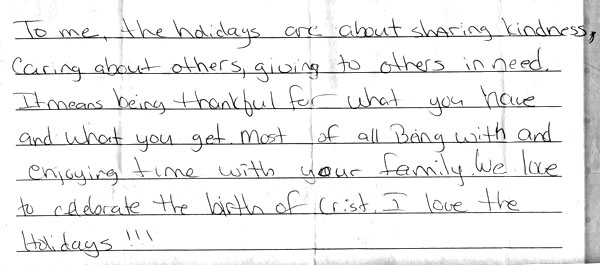 To me, the holidays are about sharing kindness,
Caring about others, giving to others in need.
It means being thankful for what you have
and what you get. Most of all Being with and
enjoying time with your family. We love
to celebrate the birth of Crist. I love the
Holidays !!!